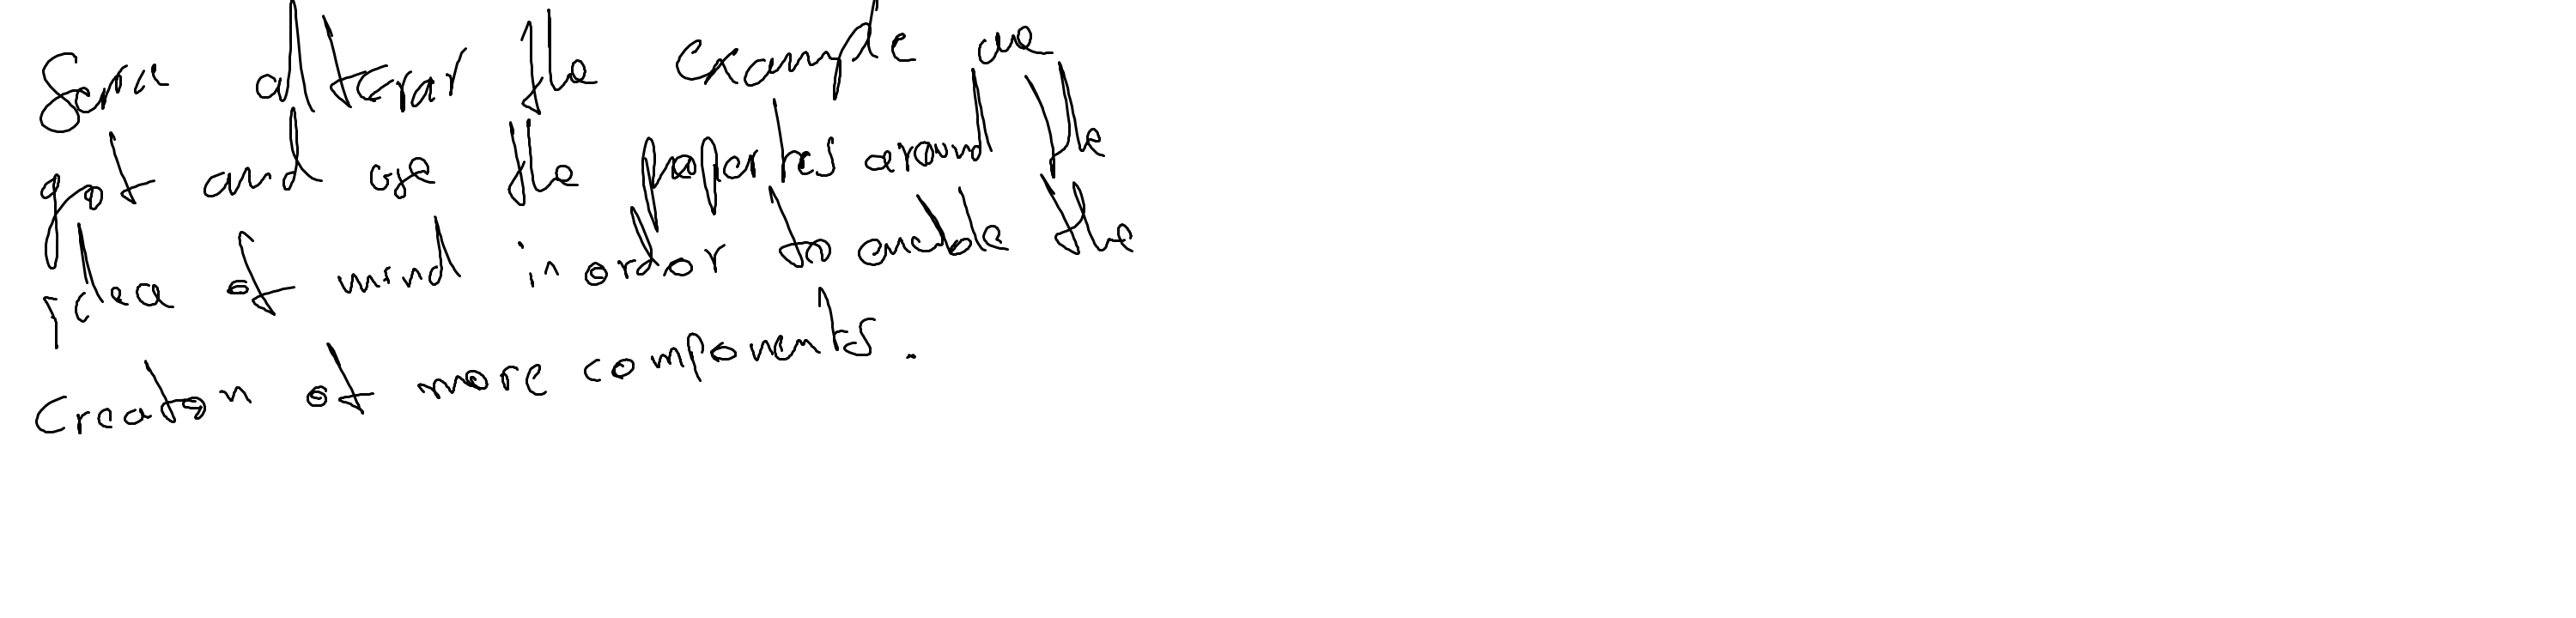 Serra alterar the example we
got and use the properties around the
idea of mind in order to enable the
Creation of more components.